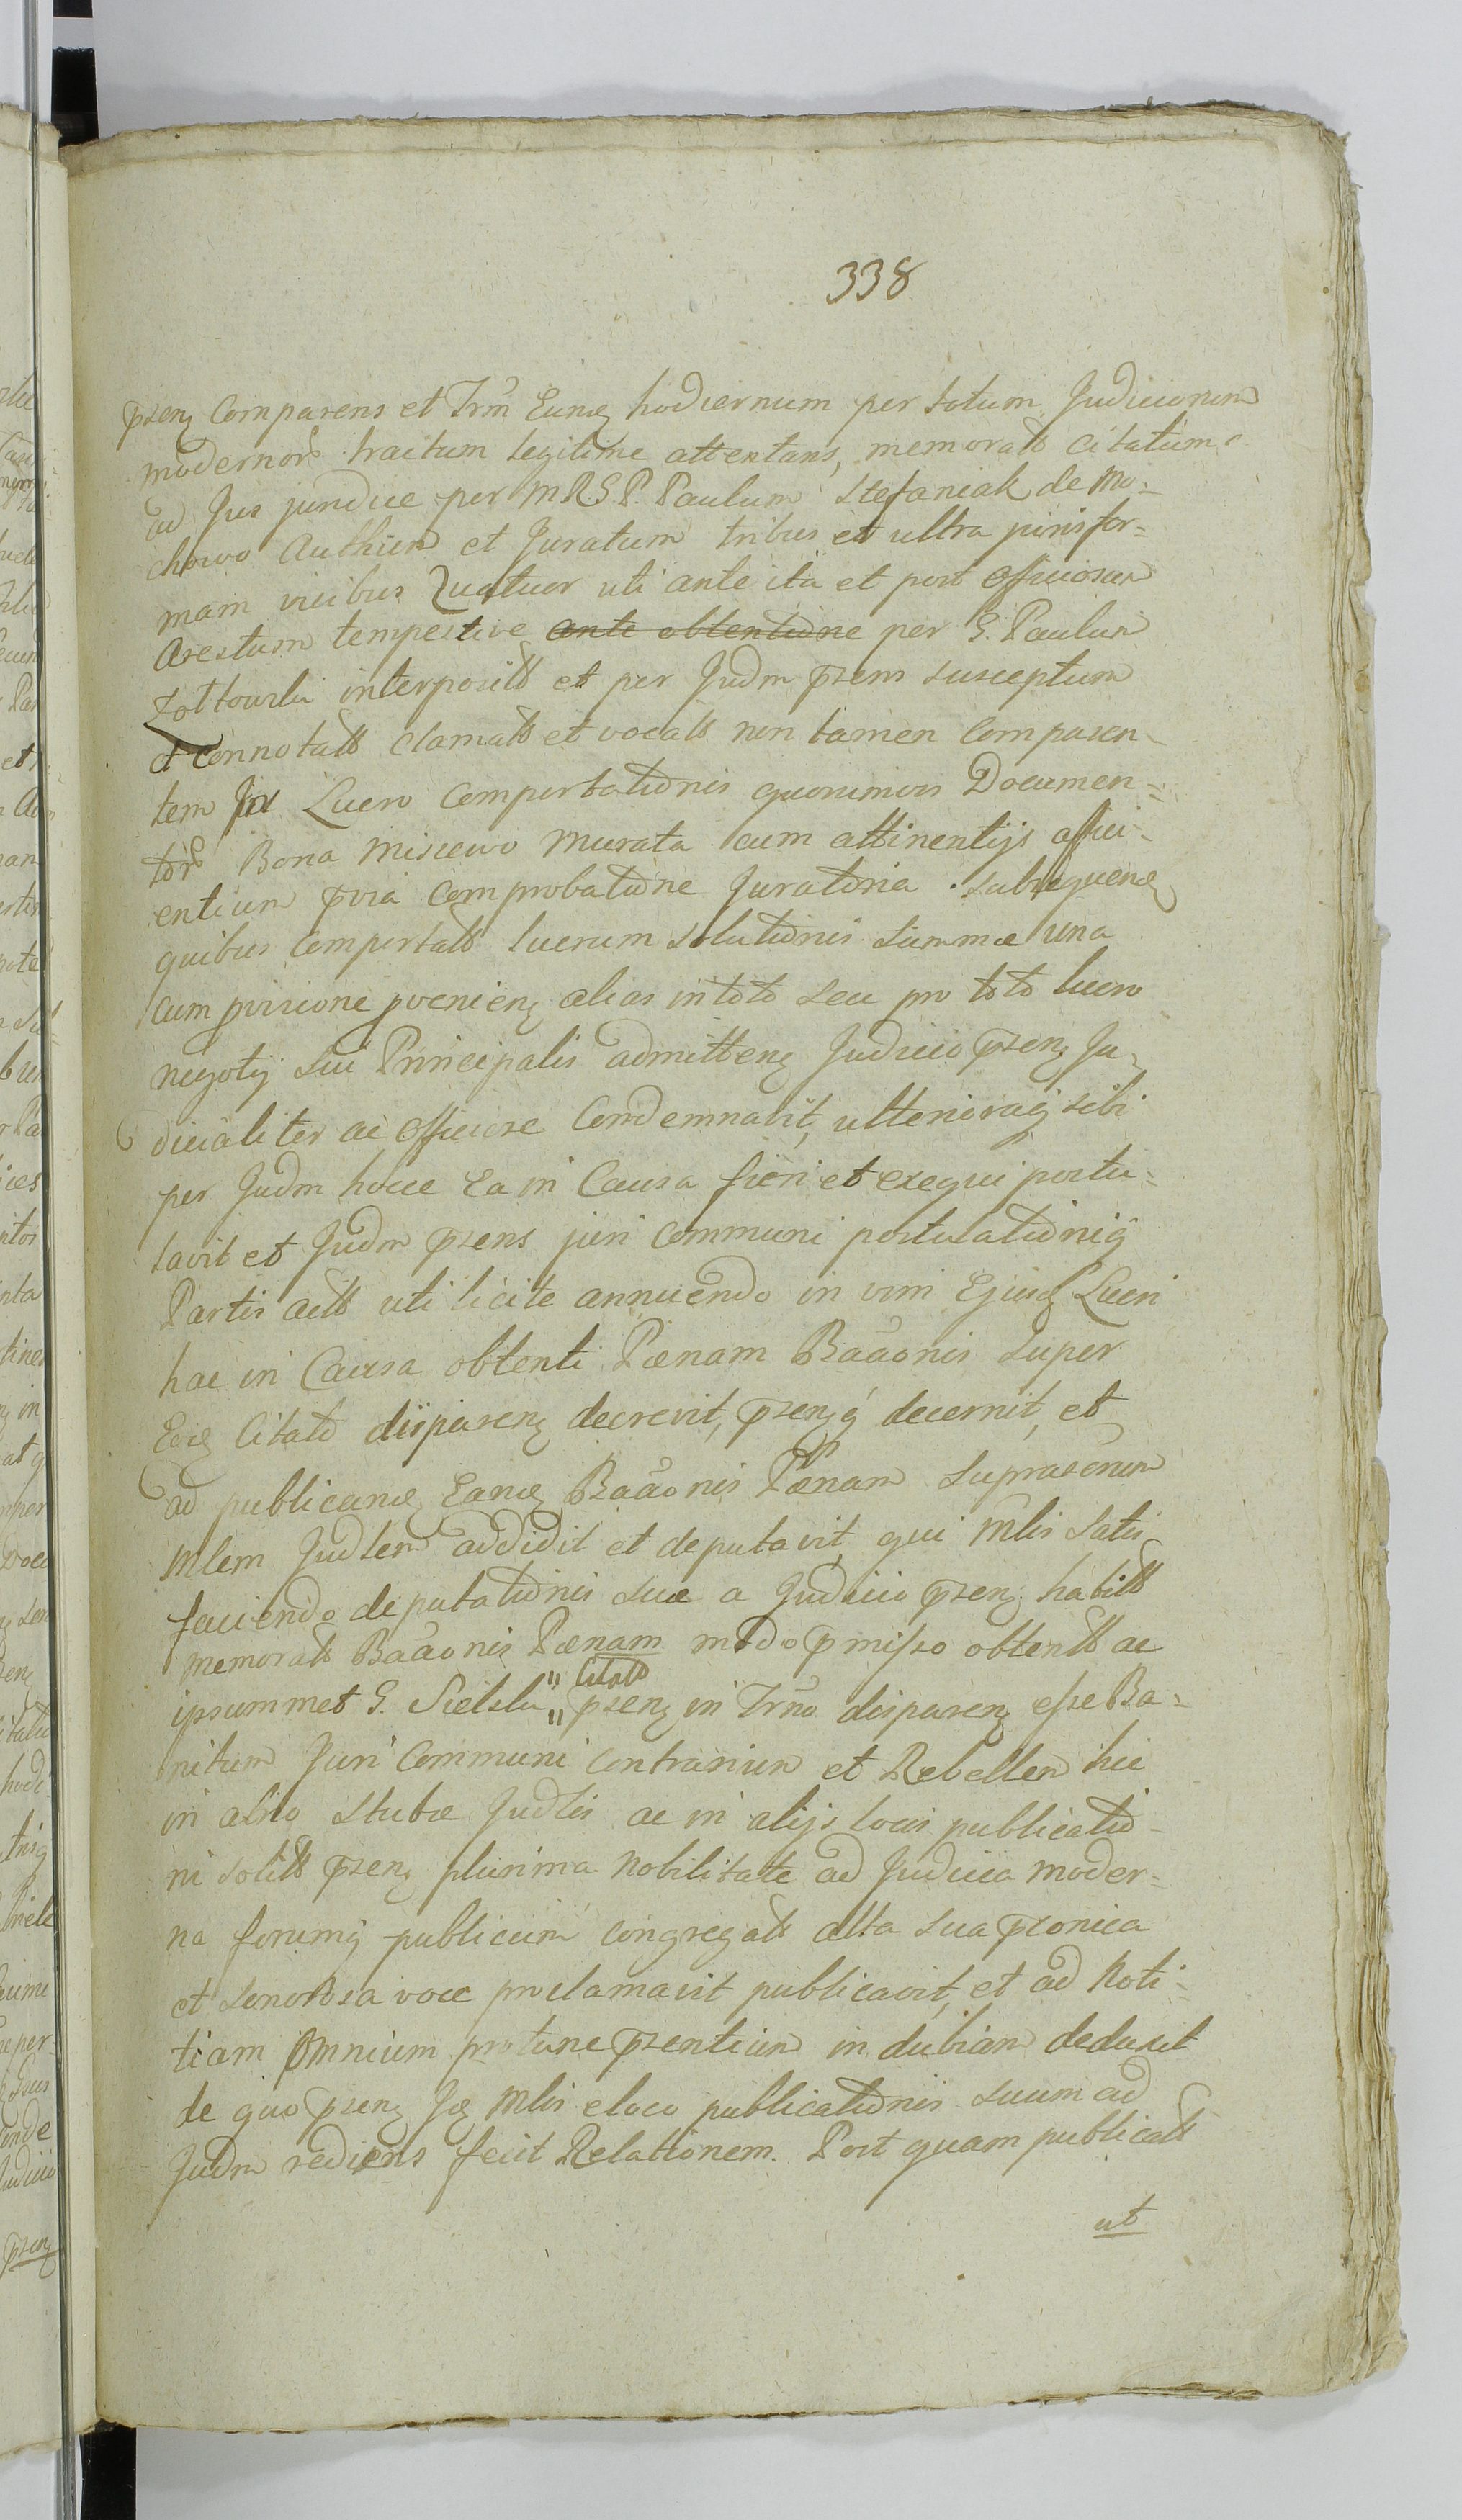 338
pzens Comparens et Trm Eund hodiernum per totum Judiciorum
modernor tractum legitime attentans, memorat Citatum
ad Jus juridice per M.R.S.P. Paulum Stefaniak de Mo-
chowo Authen et Juratum tribus et ultra juris for-
mam vicibus Quatuor uti ante ita et post officiosam
Arestum tempestive ante obtentione per G. Paulum
interposit et per Judm pzens susceptum
et connotatt clamatt et vocatt non tamen comparen-
tem in Lucro Comportationis quorumvis Documen-
tor Bona Miscewo Murata cum attinentijs affici-
entium pvia Comprobatione Juratoria subsequend
quibus Comportatt lucrum solutionis summæ una
cum pvisione pvenienq alias in toto seu pro toto lucro
negotij sui Principalis admittenq Judicio pzenq Ju-
dicialiter ac officiose Condemnavit, ulterioraq sibi
per Judm hocce Ea in Causa fieri et exequi postu-
lavit et Judm pzens juri communi postulationiq
Partis actt uti licite annuendo in vim Ejusd Lucri
hac in Causa obtenti Pænam Bãaonis super
Eod Citato disparenq decrevit, pzenq decernit, et
ad publicand Eand Bãaonis Pœnam suprascrium
Mlem Judlem addidit et deputavit, qui Mlis satis
faciendo deputationis suæ a Judicio pzenq habitt
memoratt Bãaonis Pænam modo pmisso obtentt ac
ipsummet G. Sielski " Citatt " pzenq in Trno disparenq esse Ba-
nitum Juri Communi Contrarium et Rebellem hic
in asito Stubæ Judlis ac in alijs locis publicatio-
ni solitt pzenq plurima Nobilitate ad Judicia moder-
na forumq publicum congregatt alta sua pconica
et sonorosa voce proclamavit publicavit, et ad Noti-
tiam Omnium protunc pzentium in dubiam deduxit
de quo pzenq Jd Mlis eloco publicationis suum ad
Judm rediens fecit Relationem. Post quam publicatt
ut